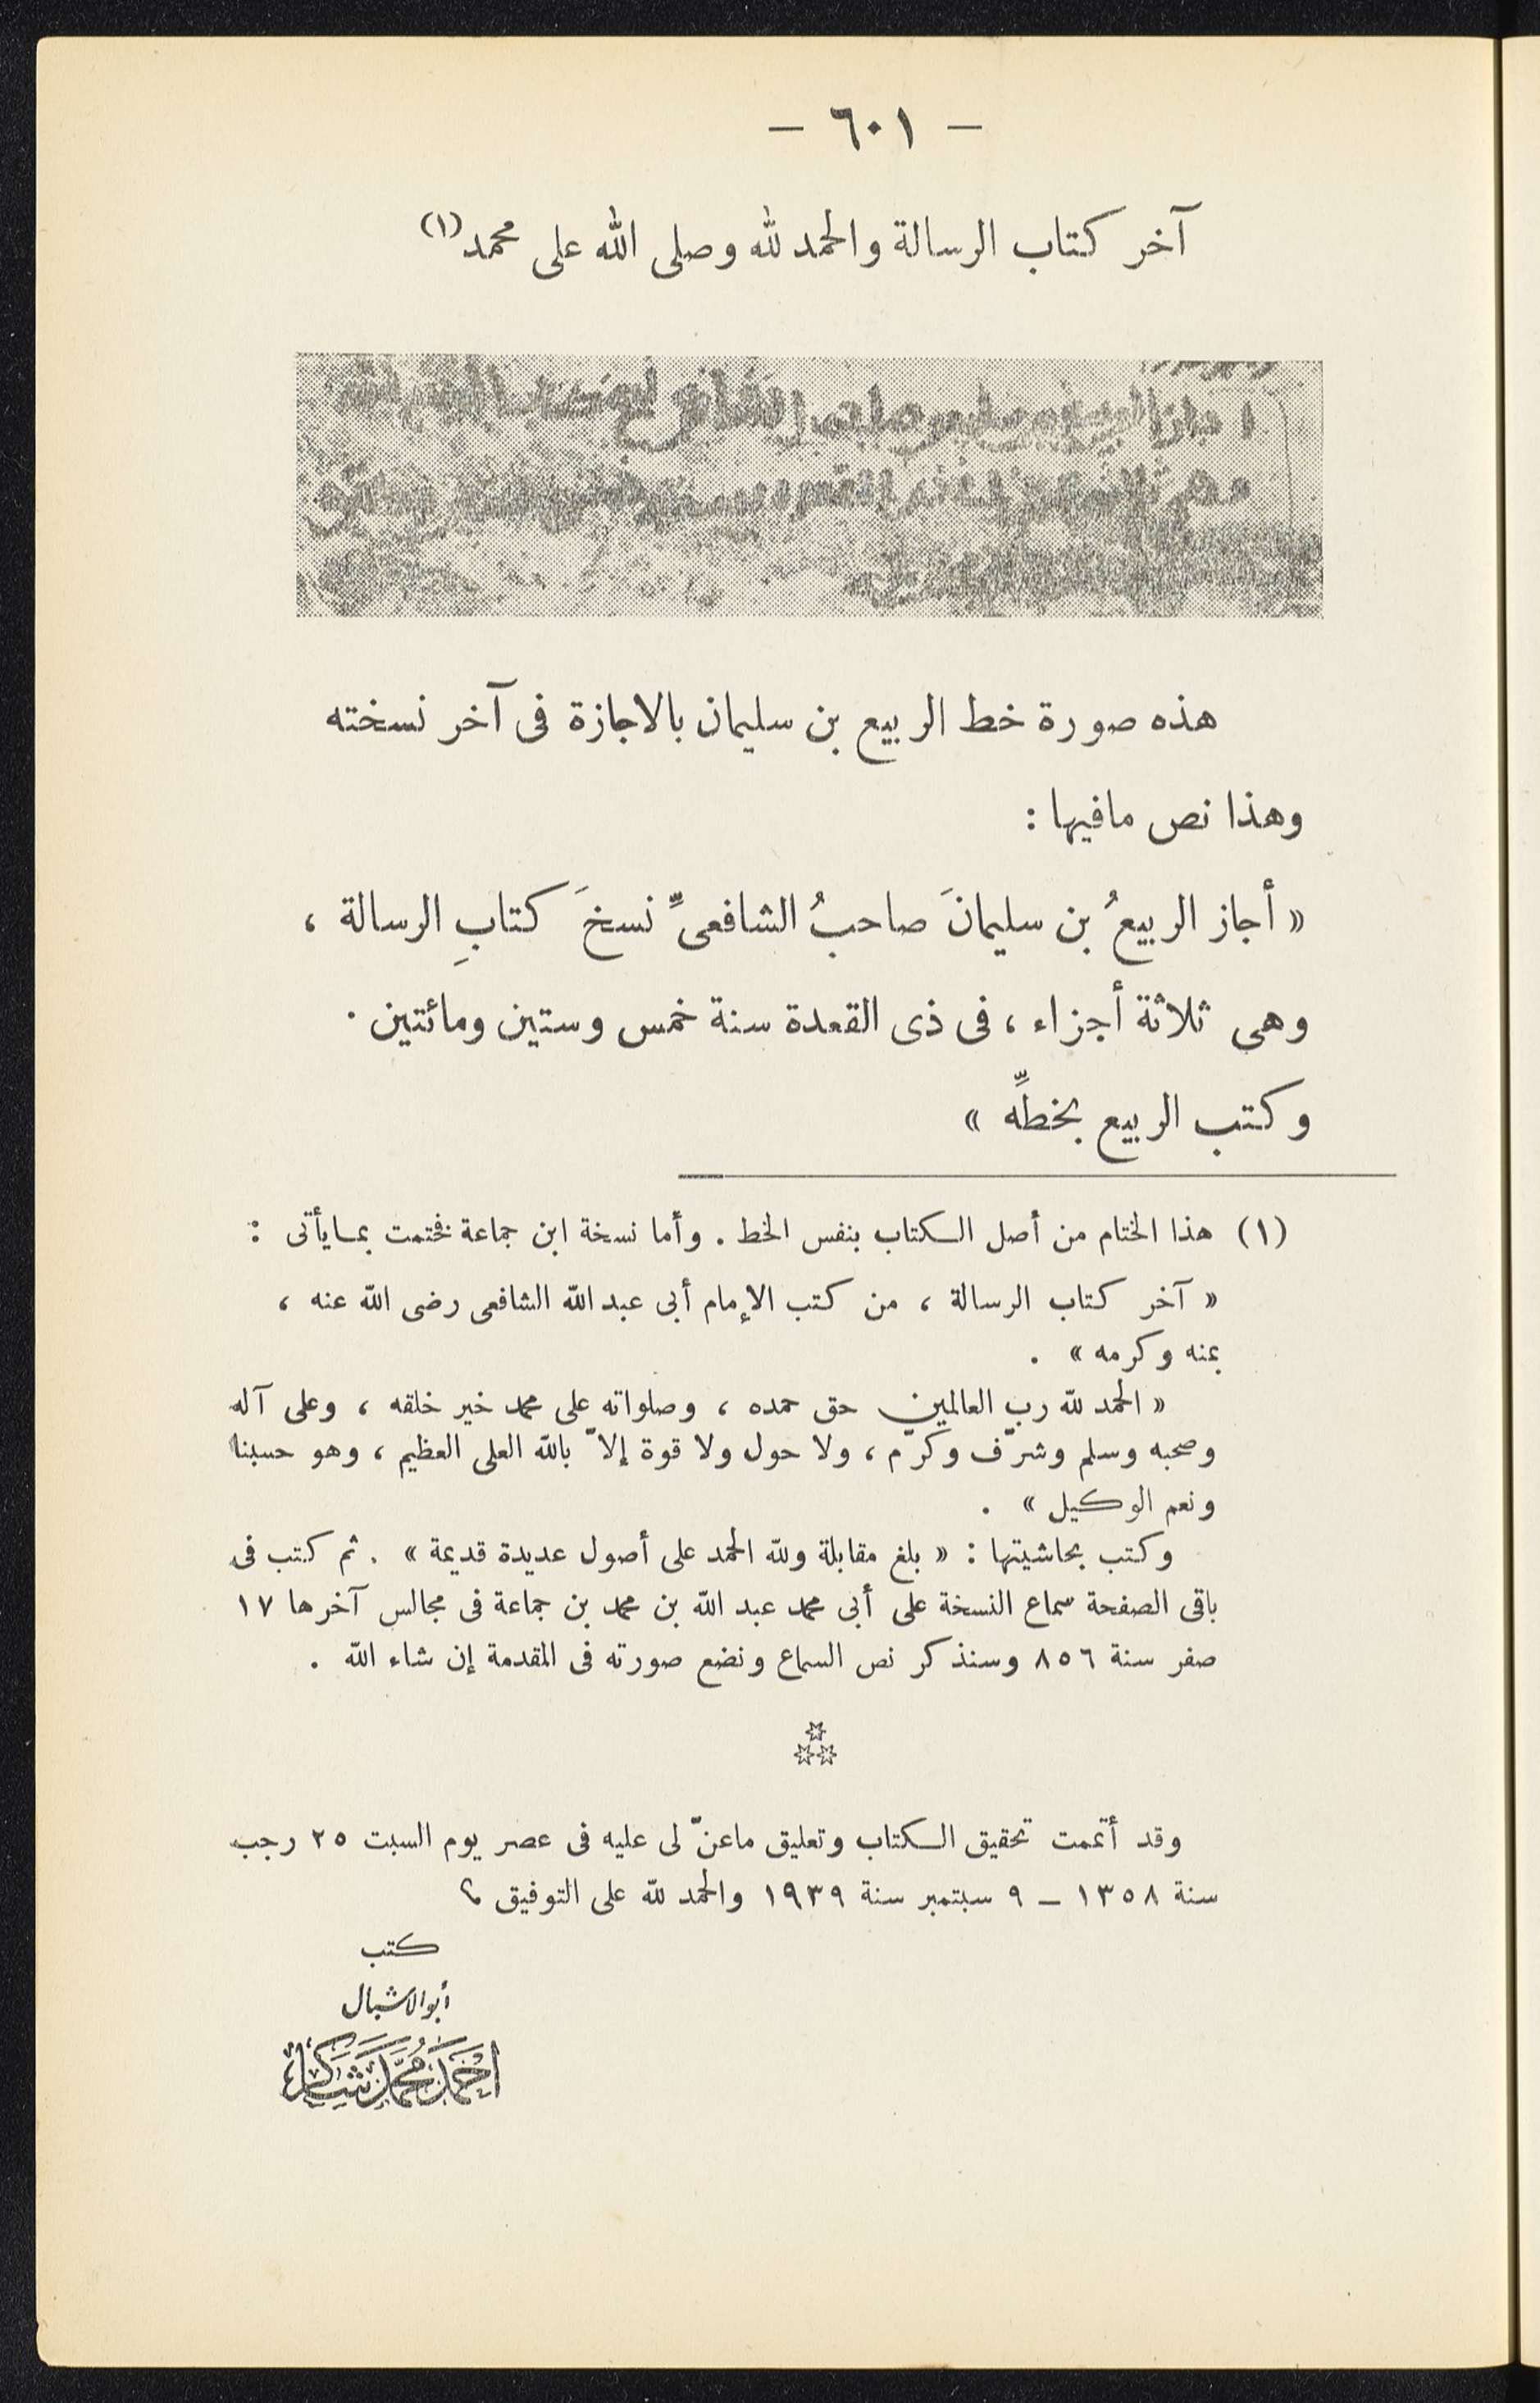 — ٦٠١ —
آخر كتاب الرسالة والحمد لله وصلى الله على محمد(١)
هذه صورة خط الربيع بن سليمان بالاجازة فى آخر نسخته
وهذا نص مافيها :
« أجاز الربيعُ بن سليمانَ صاحبُ الشافعىِّ نسخَ كتابِ الرسالة ،
وهى ثلاثة أجزاء ، فى ذى القعدة سنة خمس وستين ومائتين .
وكتب الربيع بخطِّه »
(١) هذا الختام من أصل الكتاب بنفس الخط . وأما نسخة ابن جماعة فختمت بما يأتى :
« آخر كتاب الرسالة ، من كتب الإمام أبى عبد الله الشافعى رضى الله عنه ،
بمنه وكرمه » .
« الحمد لله رب العالمين حق حمده ، وصلواته على محمد خير خلقه ، وعلى آله
وصحبه وسلم وشرّف وكرّم ، ولا حول ولا قوة إلاّ بالله العلى العظيم ، وهو حسبنا
ونعم الوكيل » .
وكتب بحاشيتها : « بلغ مقابلة ولله الحمد على أصول عديدة قديمة » . ثم كتب فى
باقى الصفحة سماع النسخة على أبى محمد عبد الله بن محمد بن جماعة فى مجالس آخرها ١٧
صفر سنة ٨٥٦ وسنذكر نص السماع ونضع صورته فى المقدمة إن شاء الله .
وقد أتممت تحقيق الكتاب وتعليق ماعنّ لى عليه فى عصر يوم السبت ٢٥ رجب
سنة ١٣٥٨ — ٩ سبتمبر سنة ١٩٣٩ والحمد لله على التوفيق
كتب
أبو الاشبال
احمد محمد شاكر